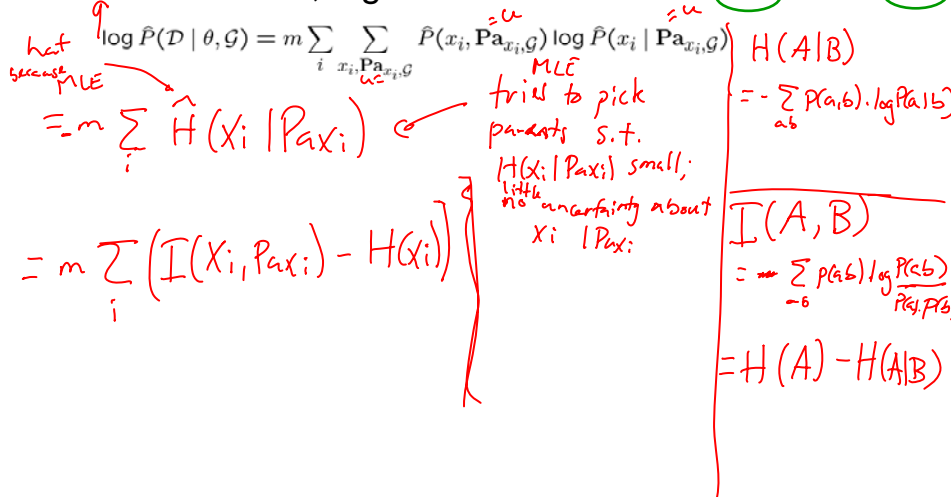 log P̂(D | θ, G) = m ∑ᵢ ∑_{xᵢ,Pa_{xᵢ,G}} P̂(xᵢ, Pa_{xᵢ,G}) log P̂(xᵢ | Pa_{xᵢ,G})
= u
= u
u =
hat
because
MLE
= - m ∑ᵢ Ĥ(Xᵢ | Paxᵢ)
MLE
tries to pick
parents s.t.
H(Xᵢ | Paxᵢ) small;
little
no uncertainty about
Xᵢ | Paxᵢ
= m ∑ᵢ (I(Xᵢ, Paxᵢ) - H(Xᵢ))
H(A|B)
= - ∑_{ab} P(a,b) . log P(a|b)
I(A, B)
= ∑_{ab} p(ab) log P(ab) / P(a).P(b)
= H(A) - H(A|B)